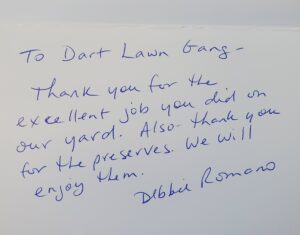 To Dart Lawn Gang -
Thank you for the
excellent job you did on
our yard. Also thank you
for the preserves. We will
enjoy them.
Debbie Romano